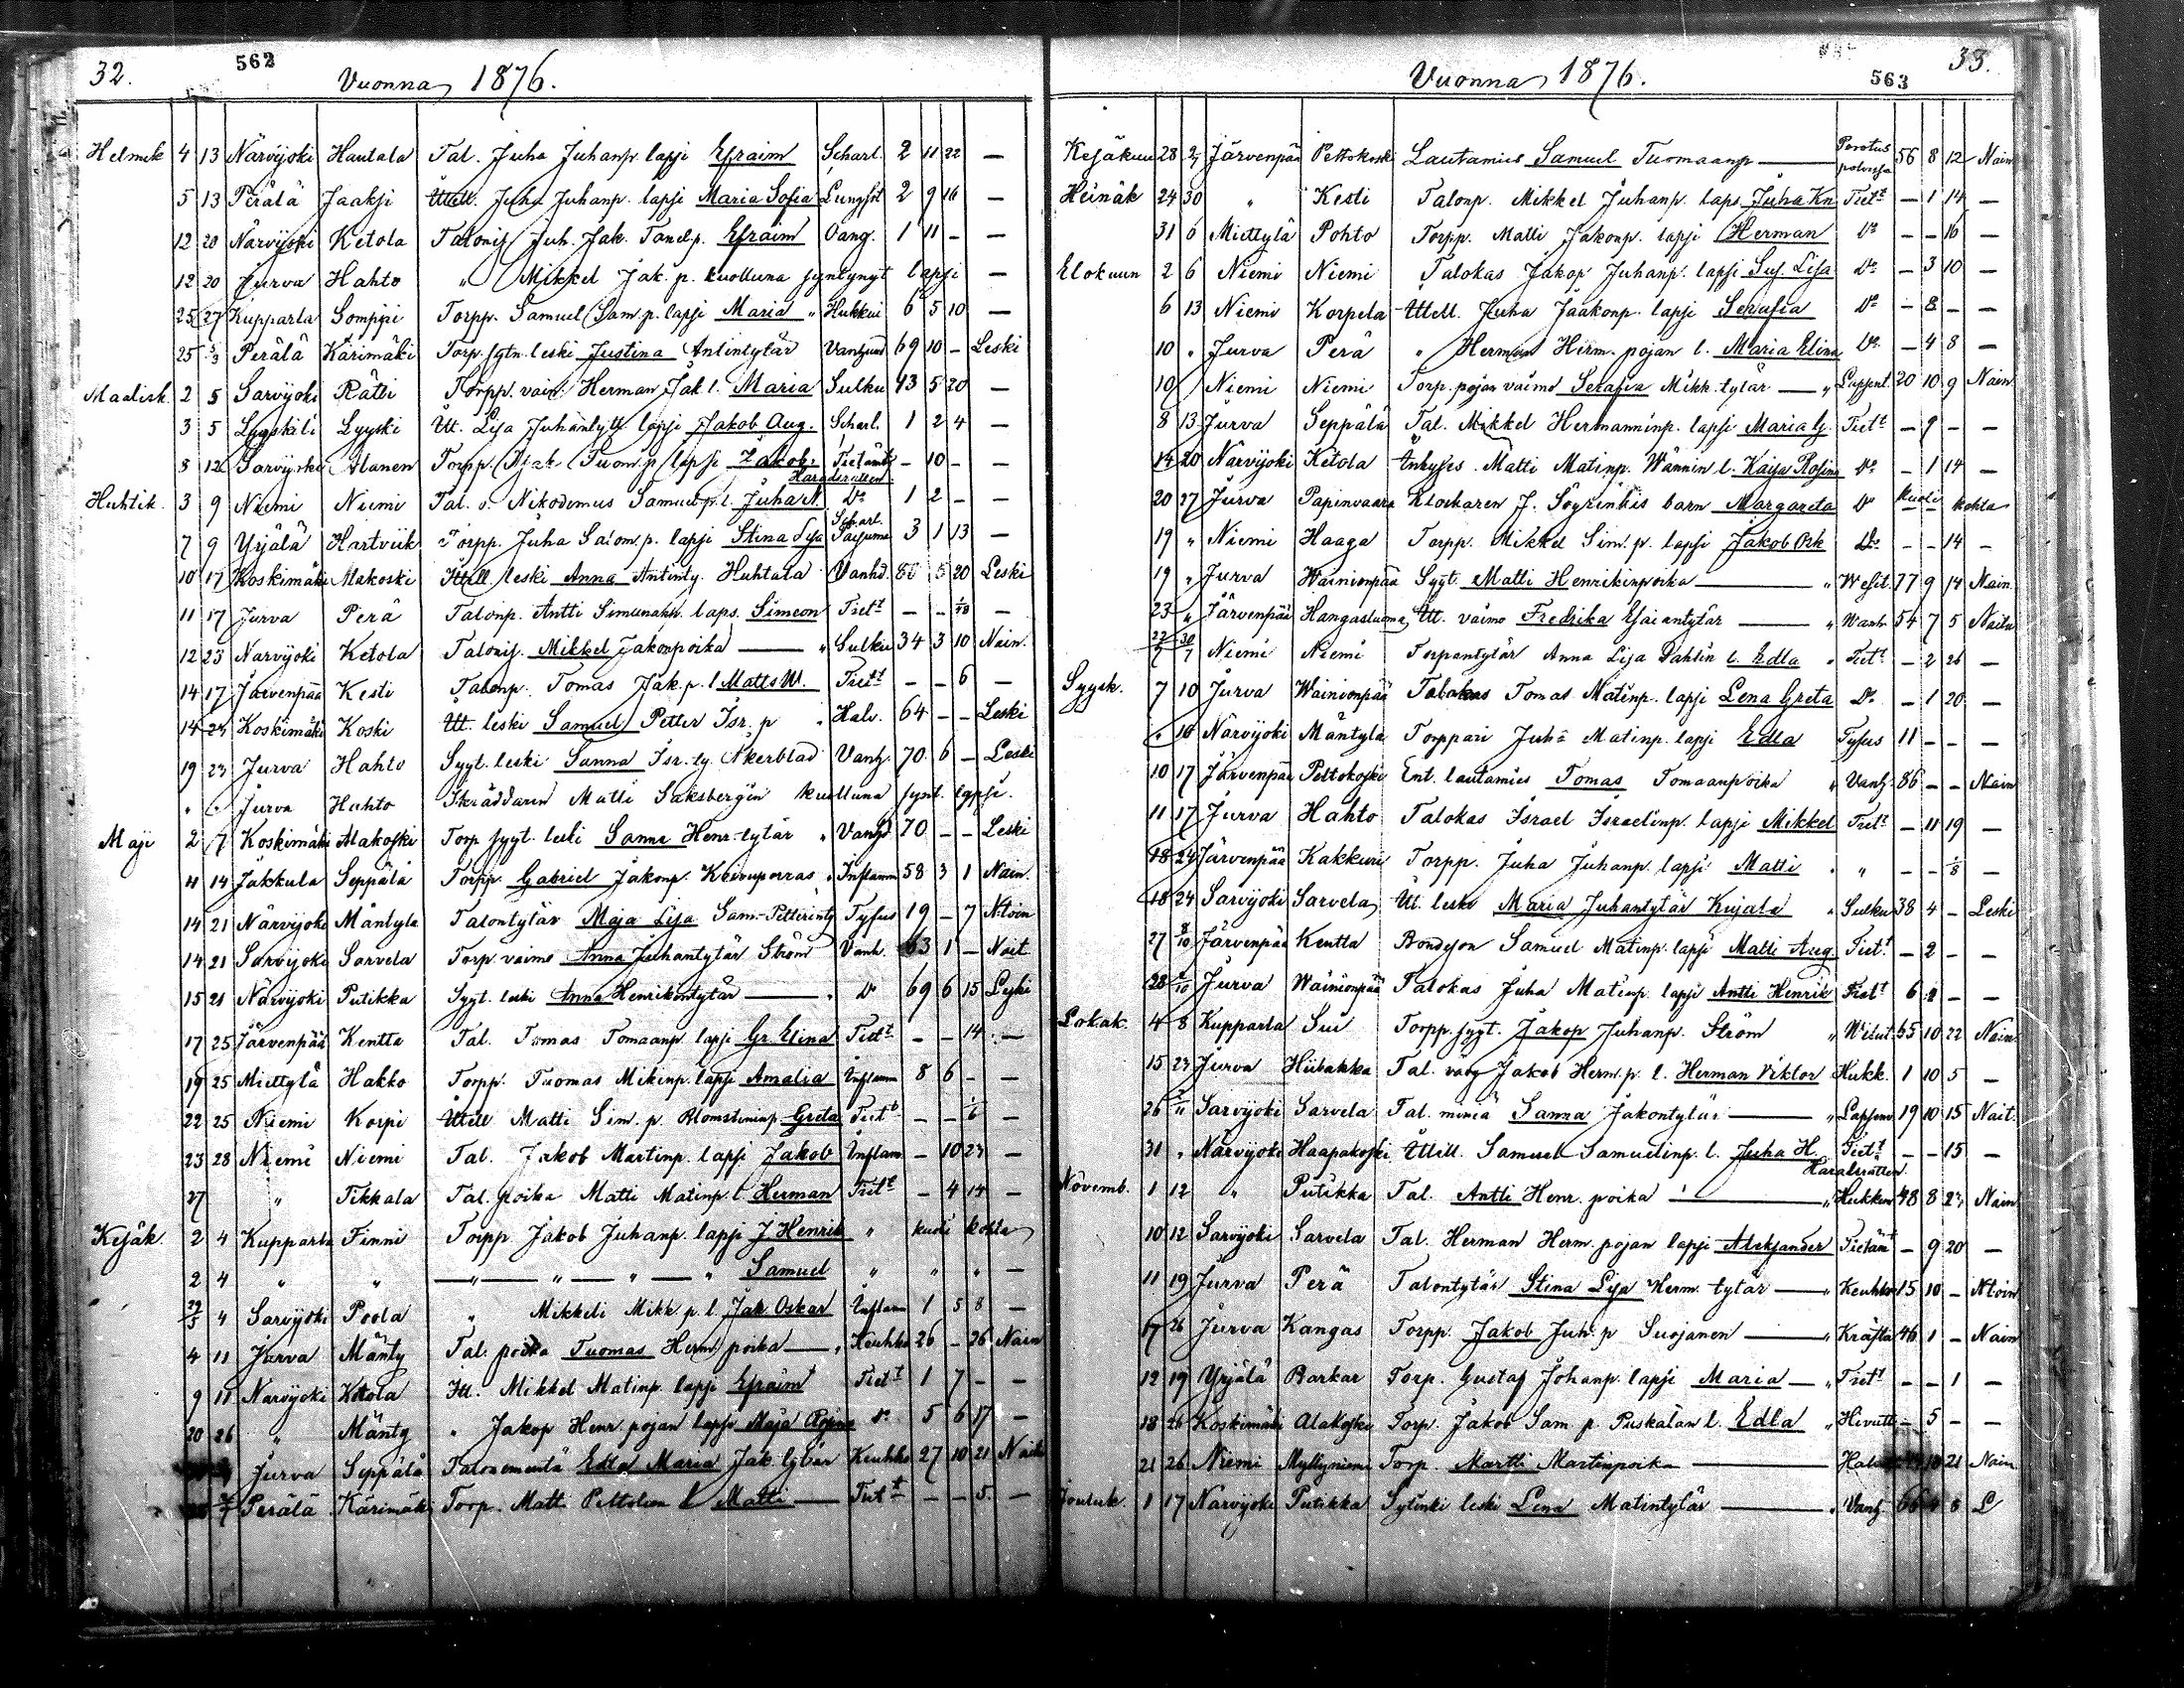 32.
562
Vuonna 1876.
Helmik 4 13 Närvijoki Hautala Tal. Juha Juhanp. lapsi Efraim Scharl. 2 11 22 —
5 13 Perälä Jaaksi Ittell. Juha Juhanp. lapsi Maria Sofia Lungsot 2 9 16 —
12 20 Närvijoki Ketola Talonis Juh. Jak. p. Efraim 1 11 - —
12 20 Jurva Hahto " Mikkel Jak. p. kuolluna syntynyt lapsi —
25 27 Kupparla Somppi Torpp. Samuel Sam. p. lapsi Maria " Hukkui 6 5 10 —
25 Perälä Kärimäki Torp. sytn. leski Justina Antintytär 69 10 - Leski
Maalisk. 2 5 Sarvijoki Rätti Torpp. vain. Herman Jak l. Maria Sulku 43 5 20 —
3 5 Lyyski Itt. Lisa Juhantytt lapsi Jakob Aug. Scharl. 1 2 4 —
8 12 Sarvijoki Alanen Torpp. Isak Tuom. p lapsi Jakob Tietämt. - 10 - -
Huhtik. 3 9 Niemi Niemi Tal. p. Nikodemus Samuelp. l. Juha N D:o 1 2 - -
7 9 Yrjälä Hartviik Torpp. Juha Salom. p. lapsi Stina Lisa Scharl. 3 1 13 —
10 17 Koskimäki Alakoski Ittell leski Anna Antinty. Huhtala Vanhd. 80 5 20 Leski
11 17 Jurva Perä Talonp. Antti Simunanp. laps. Simeon Tiett - - —
12 23 Närvijoki Ketola Talonis. Mikkel Jakonpoika — " Sulku 34 3 10 Nain.
14 17 Järvenpää Kesti Talonp. Tomas Jak. p. l Matts W. Tiett - - 6 —
14 23 Koskimäki Koski Itt. leski Samuel Petter Isr. p Halv. 64 - - Leski
19 23 Jurva Hahto Sygt. leski Sanna Isr. ty. Åkerblad Vanh. 70 6 - Leski
Jurva Hahto Skräddarin Matti Saksbergin kuolluna synt. lapsi.
Maji 2 7 Koskimäki Alakoski Torp sygt. leski Sanna Henr. tytär " Vanh 70 - - Leski
4 14 Jäkkula Seppälä Torpp. Gabriel Jakonp. Keisuporras Inflamm 58 3 1 Nain.
14 21 Närvijoki Mäntyla Talontytär Maja Lisa Sam-Petterinty Tyfus 19 - 7 Ntoin
14 21 Sarvijoki Sarvela Torp. vaimo Anna Juhantytär Ström Vanh. 63 1 - Nait
15 21 Närvijoki Putikka Sygt. leski Anna Henrikintytär — D:o 69 6 15 Leski
17 25 Järvenpää Kentta Tal. Tomas Tomaanp. lapsi Gr. Elina Tiett - - 14 —
19 25 Miettylä Hakko Torpp. Tuomas Mikinp. lapsi Amalia Inflam 8 6 - -
22 25 Niemi Korpi Ittell Matti Sim. p. Greta Tiett - - 1/6 —
23 28 Niemi Niemi Tal. Jakob Martinp. lapsi Jakob Inflam. - 10 23 —
27 " Tikkala Tal. poika Matti Matinp. l. Herman Tiett - 4 14 —
Kesäk. 2 4 Kupparla Finni Torpp Jakob Juhanp. lapsi J Henrik " kuoli kohta
2 4 " " — " — " — " — " Samuel " " " —
29/5 4 Sarvijoki Poola " Mikkeli Mikk. p. l. Jak Oskar Inflam 1 5 8 —
4 11 Jurva Mänty Tal. poika Tuomas Herm. poika — Keuhko 26 - 26 Nain
9 11 Närvijoki Ketola Itt. Mikkel Matinp. lapsi Efraim Tiett 1 7 - -
20 26 " Mänty " Jakop Henr. pojan lapsi Maja Rosina D:o 5 6 17 —
Jurva Seppälä Talonemäntä Edla Maria Jak. tytär Keuhko 27 10 21 Naitu
Perälä Kärimäki Torp. Matti l. Matti — Tiett - - 5. —
33.
563
Vuonna 1876.
Kesäkuu 28 Järvenpää Peltokoski Lautamies Samuel Tuomaanp — 56 8 12 Nain
Heinäk 24 30 " Kesti Talonp. Mikkel Juhanp. laps. Juha Kn Tiett - 1 14 —
31 6 Miettylä Pohto Torpp. Matti Jakonp. lapsi Herman D:o - - 16 —
Elokuun 2 6 Niemi Niemi Talokas Jakop Juhanp. lapsi Sus. Lisa D:o - 3 10 —
6 13 Niemi Korpela Ittell. Juha Jaakonp. lapsi Serafia D:o - 8 - -
10 " Jurva Perä " Herman Herm. pojan l. Maria Elina D:o - 4 8 —
10 Niemi Niemi Torp. pojan vaimo Serafia Mikk. tytär — " Lapsent. 20 10 9 Nain
8 13 Jurva Seppälä Tal. Mikkel Hermanninp. lapsi Maria G. Tiett - 9 - -
14 20 Närvijoki Ketola Matti Matinp. Wännin l. Kaisa Rosina D:o - 1 14 —
20 27 Jurva Papinvaara Klockaren J. barn Margareta D:o kuoli kohta
19 " Niemi Haaga Torpp. Mikkel Sim. p. lapsi Jakob D:o - - 14 -
19 " Jurva Wainionpää Sygt. Matti Henrikinpoika — " 77 9 14 Nain.
23 " Järvenpää Hangasluoma Itt. vaimo Fredrika Esaiantytär — " Wanh 54 7 5 Naitu
Niemi Niemi Torpantytär Anna Lisa Dahlin l. Edla " Tiett - 2 26 —
Syysk. 7 10 Jurva Wainionpää Talokas Tomas Matinp. lapsi Lena Greta D:o - 1 20 —
" 16 Närvijoki Mäntyla Torppari Juha Matinp. lapsi Edla Tyfus 11 - - -
10 17 Järvenpää Peltokoski Ent. lautamies Tomas Tomaanpoika " Vanh. 86 - - Nain
11 17 Jurva Hahto Talokas Israel Israelinp. lapsi Mikkel Tiett - 11 19 —
18 24 Järvenpää Kakkuri Torpp. Juha Juhanp. lapsi Matti " - - 1/8 —
18 24 Sarvijoki Sarvela Itt. leski Maria Juhantytär Kujala " Sulku 38 4 - Leski
27 8/10 Järvenpää Kentta Bondeson Samuel Matinp. lapsi Matti Aug. Tiett - 2 - -
28 Jurva Wäinionpää Talokas Juha Matinp. lapsi Antti Henrik Tiett 6 2 - -
Lokak. 4 8 Kupparla Sui Torpp. sygt. Jakop Juhanp. Ström " 65 10 22 Nain
15 23 Jurva Hiibakka Tal. väv Jakob Herm. p. l. Herman Viktor Hukk. 1 10 5 —
26 Sarvijoki Sarvela Tal. miniä Sanna Jakontytär — " Lapsenv 19 10 15 Nait.
31 " Närvijoki Haapakoski Ittell. Samuel Samuelinp. l. Juha H. Tiett - - 15 —
Novemb. 1 12 " Putikka Tal. Antti Henr. poika — " Hukkui 48 8 23 Nain
10 12 Sarvijoki Sarvela Tal. Herman Herm. pojan lapsi Aleksander Tietämt - 9 20 —
11 19 Jurva Perä Talontytär Stina Lisa Herm. tytär — " Keuhko 15 10 - Ntoin
17 26 Jurva Kangas Torpp. Jakob Juh. p Suojanen — " Kräfta 46 1 - Nain
12 19 Yrjälä Barkar Torp. Gustaf Johanp. lapsi Maria — " Tiett - - 1 —
18 26 Koskimäki Alakoski Torp. Jakob Sam. p. Puskalan l. Edla " - 5 - -
21 26 Niemi Myllyniemi Torp. Martti Martinpoik — 21 Nain
Jouluk. 1 17 Närvijoki Putikka Sytinki leski Lena Matintytär — " Vanh 66 4 6 L